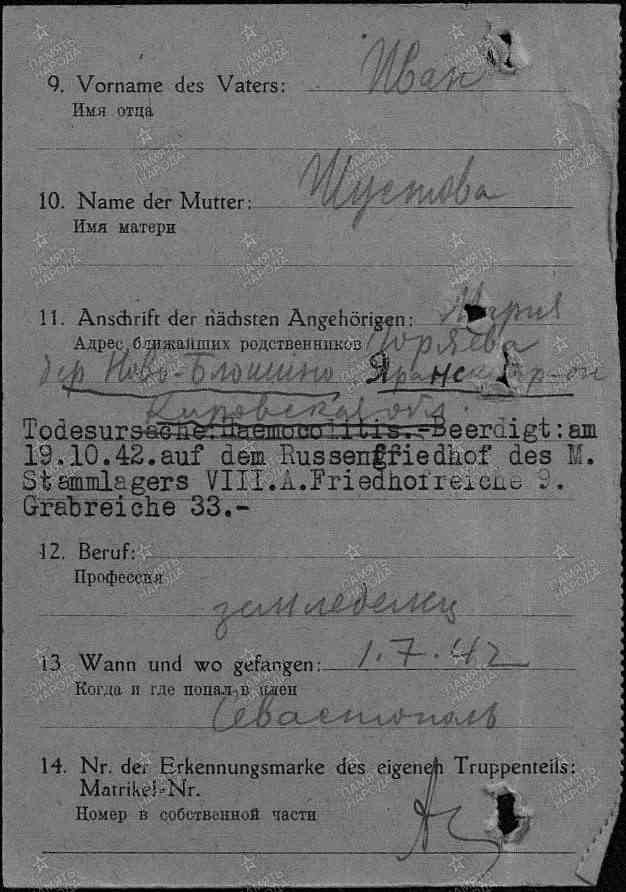 9. Vorname des Vaters: Иван
Имя отца
10. Name der Mutter: Шустова
Имя матери
11. Anschrift der nächsten Angehörigen: Мария
Адрес ближайших родственников
дер Ново-Блошино Яранск р-он
Кировская обл.
Todesursache: Haemocolitis.-Beerdigt: am
19.10.42.auf dem Russengfriedhof des M.
Stammlagers VIII.A.Friedhofreiche 9.
Grabreiche 33.-
12. Beruf:
Профессия
земледелец
13 Wann und wo gefangen: 1.7.42
Когда и где попал в плен
Севастополь
14. Nr. der Erkennungsmarke des eigenen Truppenteils:
Matrikel-Nr.
Номер в собственной части
ПАМЯТЬ НАРОДА